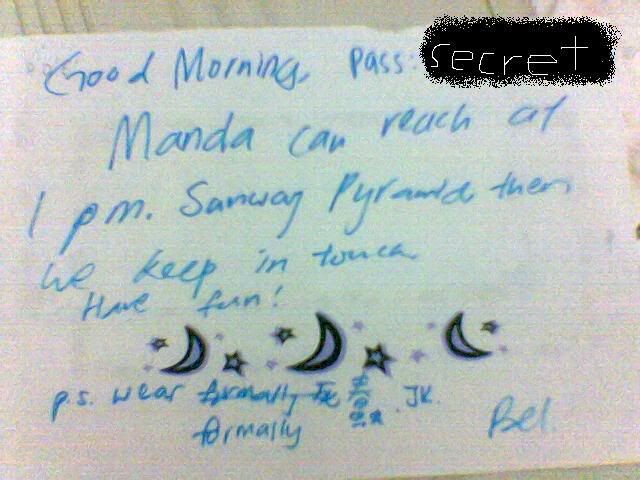 Good Morning, pass: secret
Manda can reach at
1 pm. Sunway Pyramid, then
we keep in touch
Have fun!
p.s. wear formally JK.
formally
Bel.